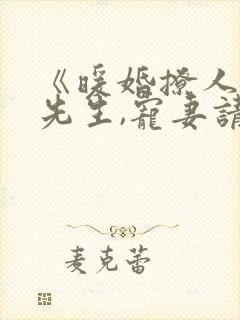 《暖婚撩人
先生,寵妻請
麦克蕾